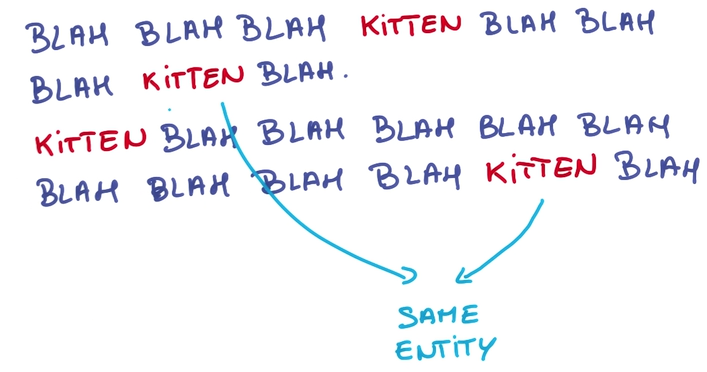 BLAH BLAH BLAH KiTTEN BLAH BLAH
BLAH KiTTEN BLAH.
KiTTEN BLAH BLAH BLAH BLAH BLAH
BLAH BLAH BLAH BLAH KiTTEN BLAH
SAME
ENTiTY